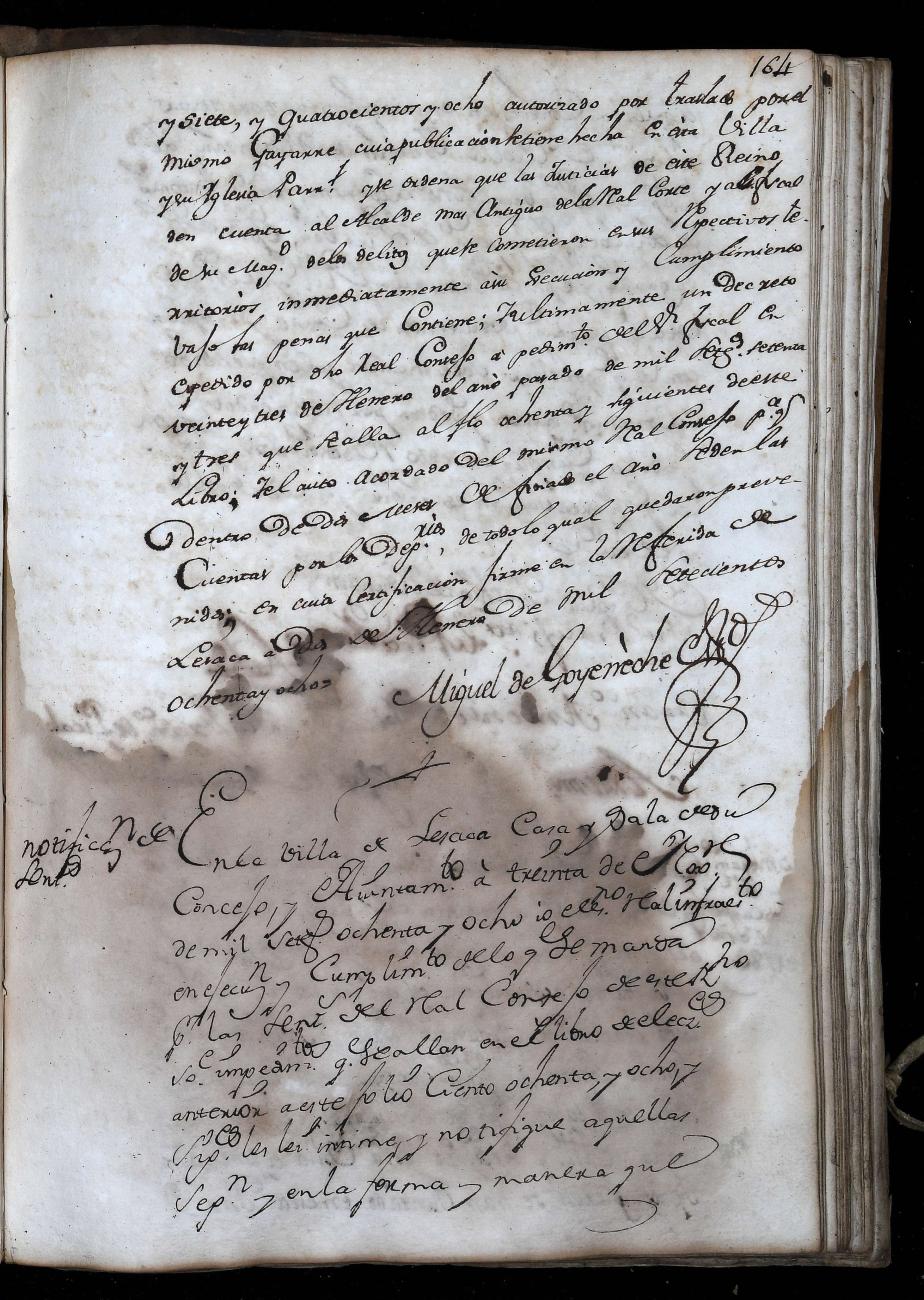 164
y siete, y quatrocientos y ocho autorizado por traslado por el
mismo Gayarre cuia publicación se tiene hecha en esta Villa
y su Iglesia Parr.l y se ordena que las Justicias de este Reino
den cuenta al Alcalde mas Antiguo de la Rl Corte y al fiscal
de su Mag.d de los delitos que se cometieron en sus Rspectivos te-
rritorios inmediatamente à su Execución y Cumplimiento
vajo las penas que Contiene; Y ultimamente un Decreto
expedido por dho Real Consejo a pedim.to del Sr fiscal en
veinte y tres de Henero del año pasado de mil Setez.s setenta
y tres que se alla al folio ochenta y siguientes de este
Libro; Y el auto acordado del mismo Rl Consejo p.a q.e
dentro de dos Meses de finado el año se den las
Cuentas por los Dep.rios, de todo lo qual quedaron preve-
nidos; en cuia Certificación firme en la Referida de
Lesaca a Dos de Henero de mil setecientos
ochenta y ocho=
Miguel de Goyeneche Essno
notific.n de
Sent.s
En la Villa de Lesaca Casa y Sala de su
Concejo, y Aiuntam.to à treinta de Nov.re
de mil Setez.s ochenta y ocho io el es.no Real infraes.to
en ejecu.n y Cumplim.to de lo q.e Se manda
p.r las Sent.s del Rl Consejo de este R.no
So.e impedim.tos q.e Se allan en el libro de elec.es
anterior a este folio Ciento ochenta, y ocho, y
Sig.es les lei intime, y notifique aquellas
Seg.n y en la forma y manera que